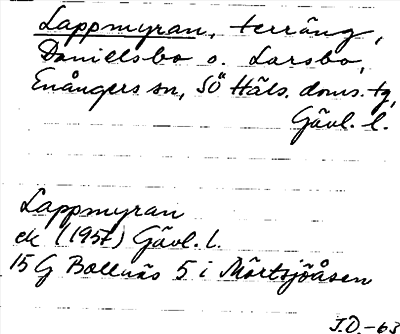 Lappmyran, terräng,
Danielsbo o. Larsbo,
Enångers sn, SÖ Häls. doms. tg,
Gävl. l.
Lappmyran
ek (1957) Gävl. l.
15 G Bollnäs 5 i Mörtsjöåsen
J.D.-63